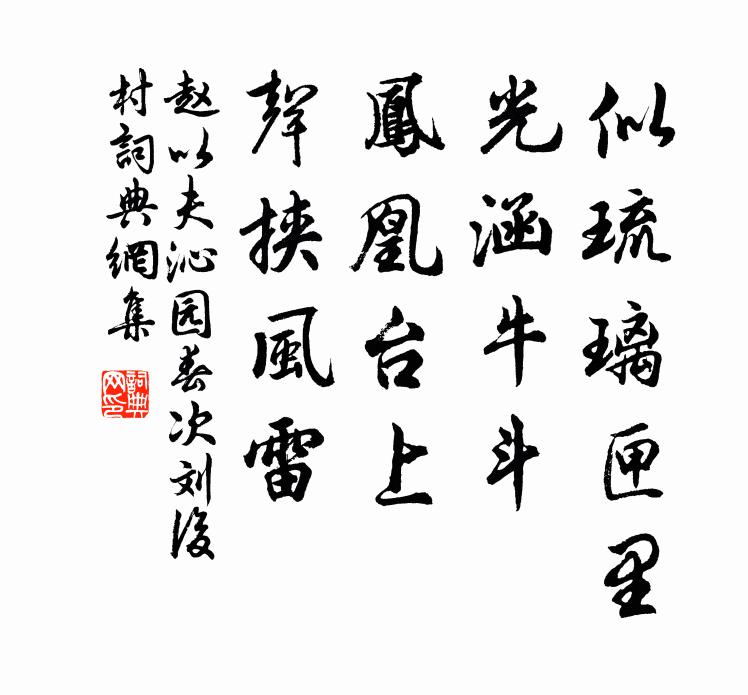 似琉璃匣里
光涵牛斗
鳳凰台上
聲挾風雷
赵以夫沁园春次刘後
村詞典網集
詞典
网印